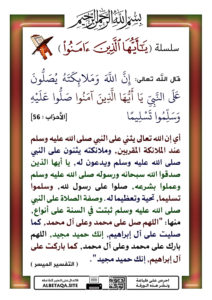 بسم الله الرحمن الرحيم
سلسلة ﴿ يَـٰٓأَيُّهَا ٱلَّذِينَ ءَامَنُوا۟ ﴾
قال الله تعالى: إِنَّ اللَّهَ وَمَلَائِكَتَهُ يُصَلُّونَ
عَلَى النَّبِيِّ يَا أَيُّهَا الَّذِينَ آمَنُوا صَلُّوا عَلَيْهِ
وَسَلِّمُوا تَسْلِيمًا
[الأحزاب : 56]
أي إن الله تعالى يثني على النبي صلى الله عليه وسلم
عند الملائكة المقربين، وملائكته يثنون على النبي
صلى الله عليه وسلم ويدعون له، يا أيها الذين
صدقوا الله سبحانه ورسوله صلى الله عليه وسلم
وعملوا بشرعه، صلوا على رسول الله، وسلموا
تسليما، تحية وتعظيما له. وصفة الصلاة على النبي
صلى الله عليه وسلم ثبتت في السنة على أنواع،
منها: "اللهم صل على محمد وعلى آل محمد، كما
صليت على آل إبراهيم، إنك حميد مجيد، اللهم
بارك على محمد وعلى آل محمد، كما باركت على
آل إبراهيم، إنك حميد مجيد".
( التفسير الميسر )
احرص على طباعة
ونشر هذه الورقة
ALBETAQA.SITE